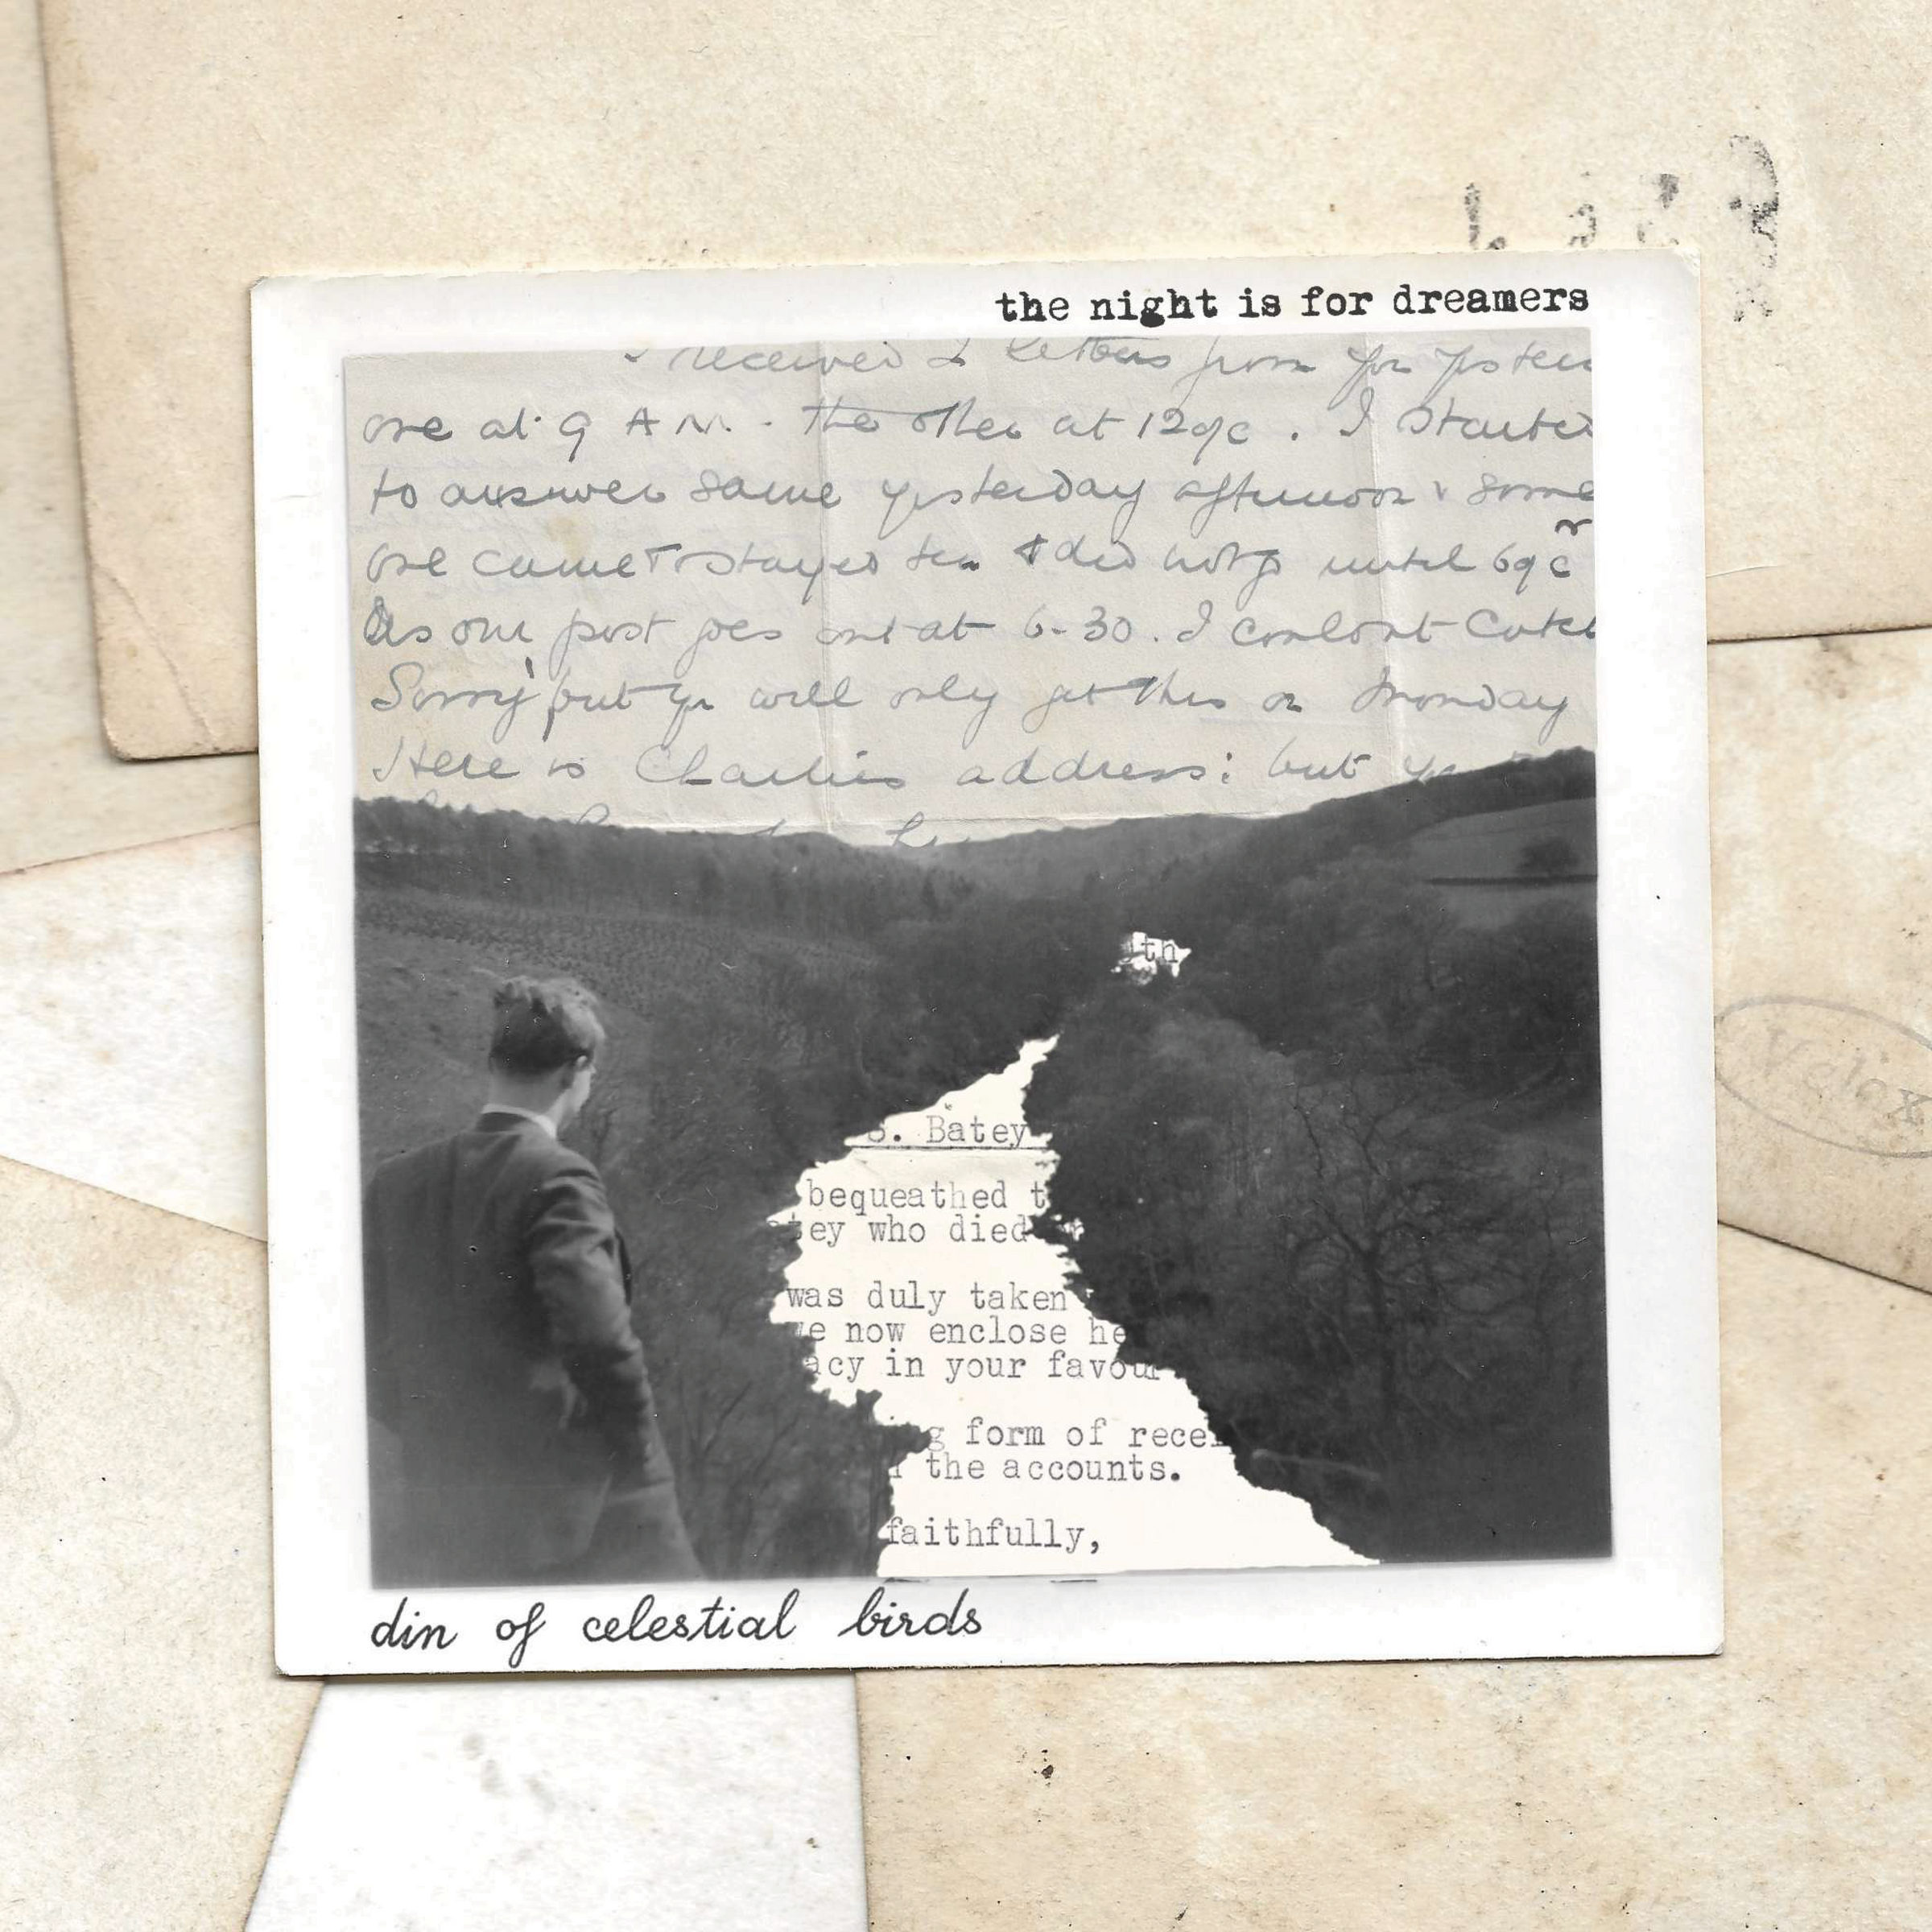 the night is for dreamers
received 2 letters from you
one at 9 AM. - the other at 12
to answer same yesterday afternoon & some
one came stayed tea & did not go until 6
As our post goes out at 6-30. I couldnt
Sorry but you will only get this on Monday
Here is Charlies address: but
th
S. Batey
bequeathed t
tey who died
was duly taken
we now enclose he
acy in your favour
g form of recei
the accounts.
faithfully,
din of celestial birds
Velox